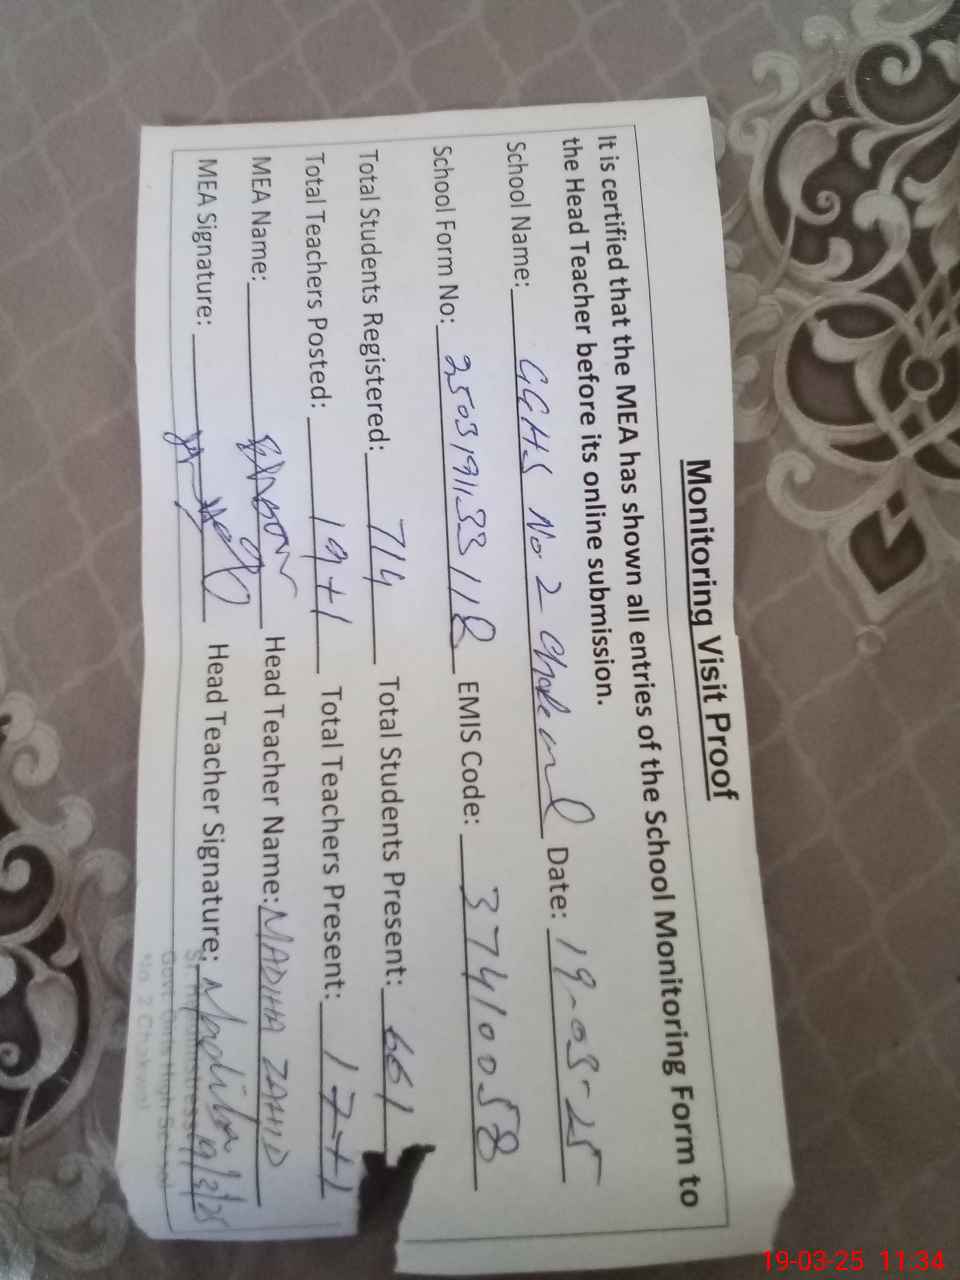 Monitoring Visit Proof
It is certified that the MEA has shown all entries of the School Monitoring Form to
the Head Teacher before its online submission.
School Name: GGHS No 2 Chakwal Date: 19-03-25
School Form No: EMIS Code: 37410058
Total Students Registered: 714 Total Students Present: 661
Total Teachers Posted: 19+1 Total Teachers Present: 17+1
MEA Name: Head Teacher Name: MADIHA ZAHID
MEA Signature: Head Teacher Signature: Madiha 19/3/25
Sr. Headmistress
Govt Girls High School
No. 2 Chakwal
19-03-25 11:34